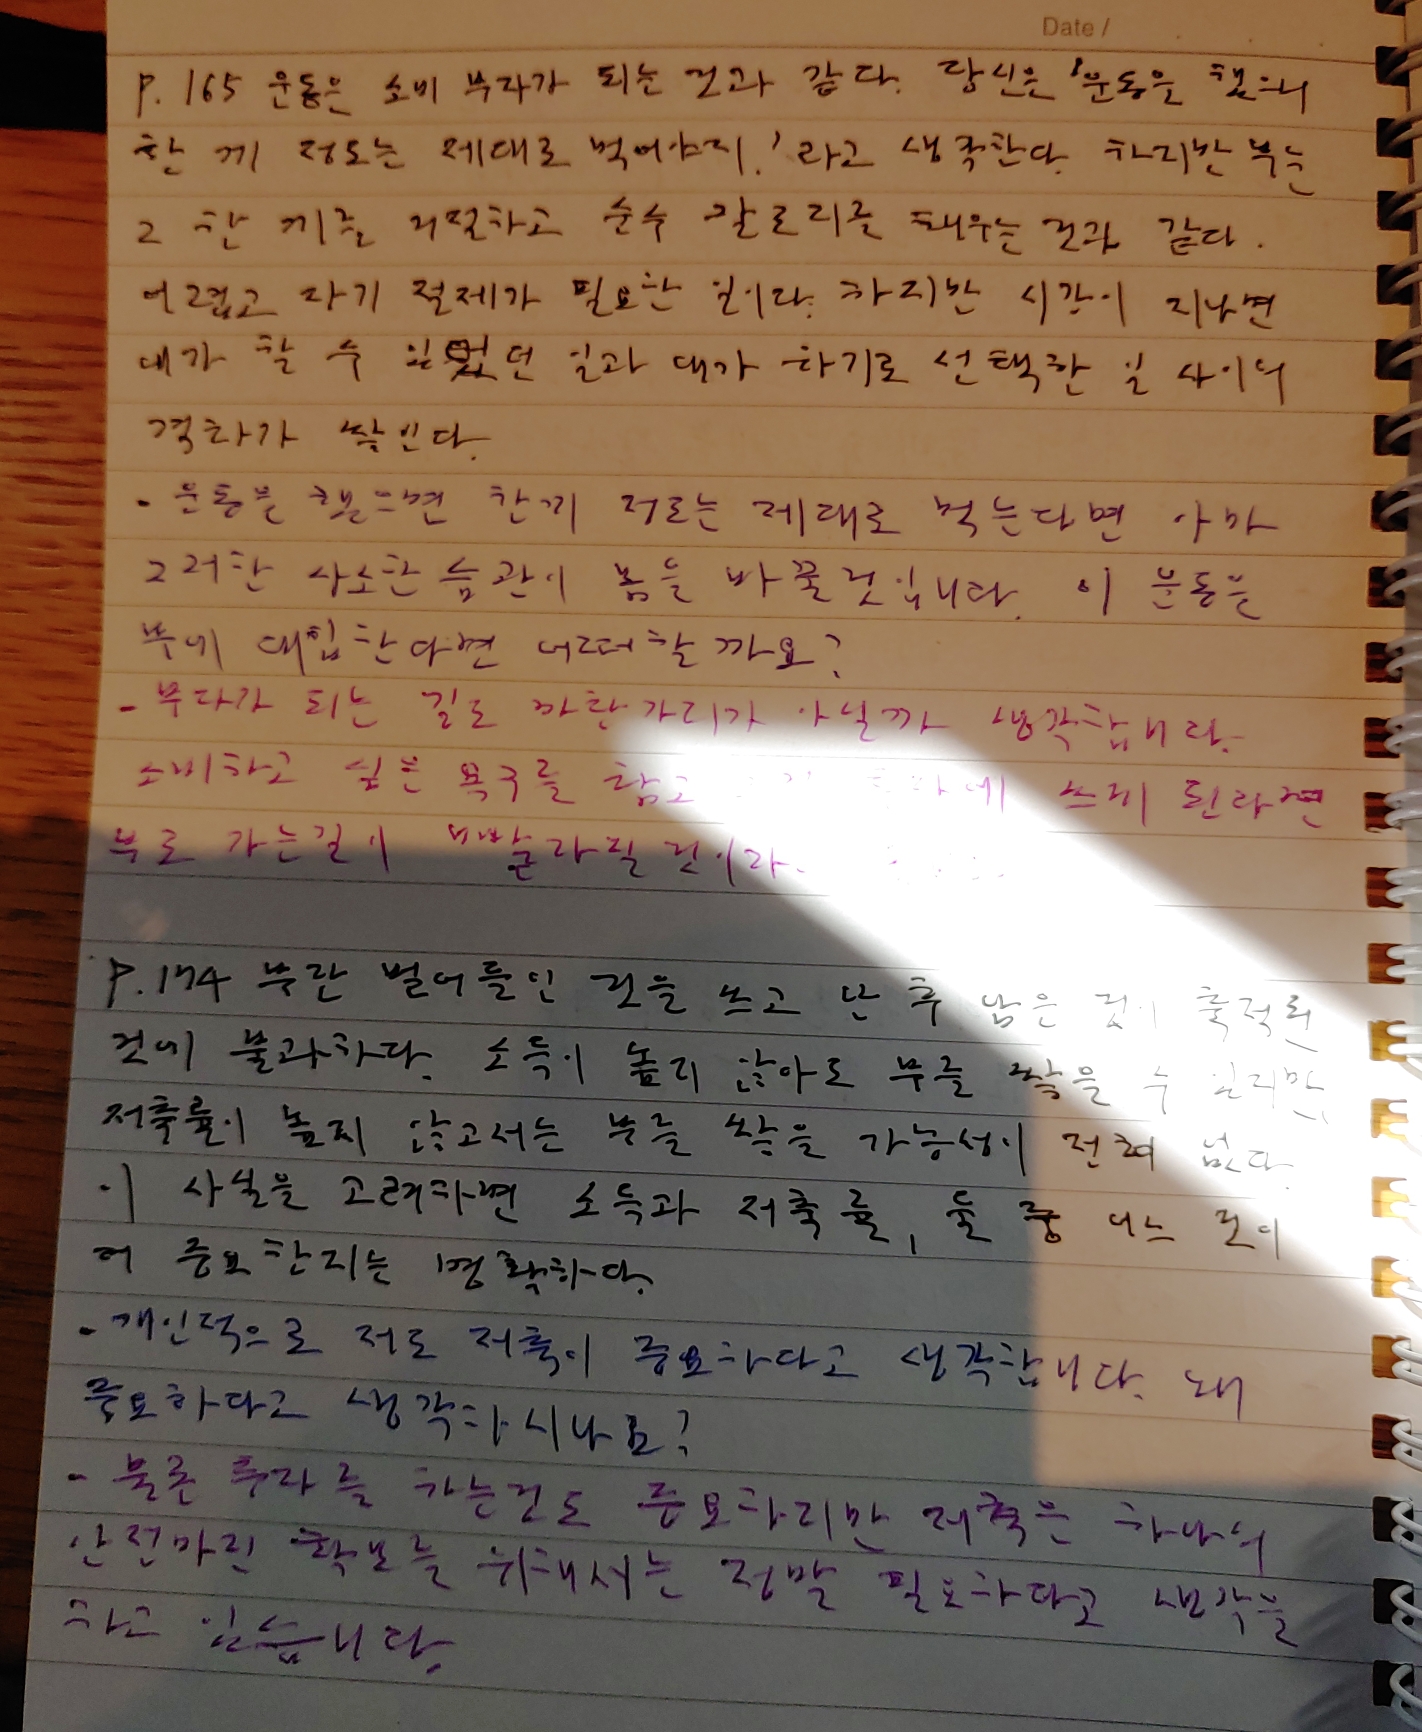 Date /
P. 165 운동은 소비 부자가 되는 것과 같다. 당신은 '운동을 했으니
한 끼 정도는 제대로 먹어야지.' 라고 생각한다. 하지만 부는
그 한 끼를 거절하고 순수 칼로리를 태우는 것과 같다.
어렵고 자기 절제가 필요한 일이다. 하지만 시간이 지나면
내가 할 수 있었던 일과 내가 하기로 선택한 일 사이의
격차가 쌓인다.
- 운동을 했으면 한끼 정도는 제대로 먹는다면 아마
그러한 사소한 습관이 몸을 바꿀것입니다. 이 운동을
부에 대입한다면 어떠할까요?
- 부자가 되는 길도 마찬가지가 아닐까 생각합니다.
소비하고 싶은 욕구를 참고 쓰게 된다면
부로 가는길이 빨라질것이다.
P. 174 부란 벌어들인 것을 쓰고 난 후 남은 것이 축적된
것에 불과하다. 소득이 높지 않아도 부를 쌓을 수 있지만,
저축률이 높지 않고서는 부를 쌓을 가능성이 전혀 없다.
이 사실을 고려하면 소득과 저축률, 둘 중 어느 것이
더 중요한지는 명확하다.
- 개인적으로 저도 저축이 중요하다고 생각합니다. 왜
중요하다고 생각하시나요?
- 물론 투자를 하는것도 중요하지만 저축은 하나의
안전마진 확보를 위해서는 정말 필요하다고 생각을
하고 있습니다.